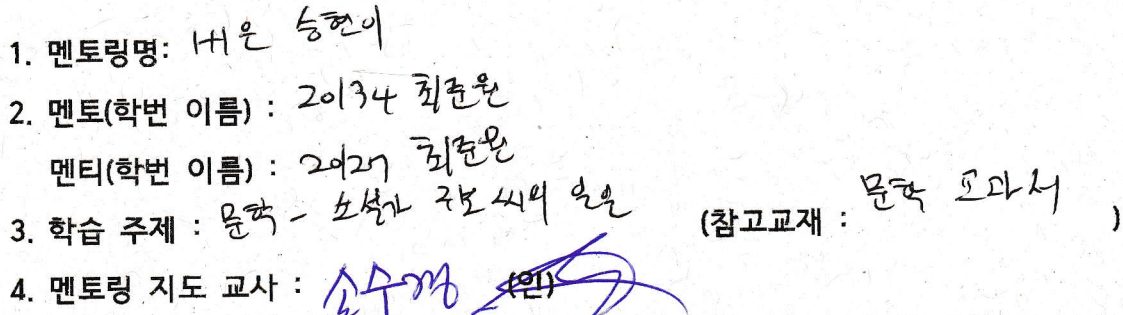 1. 멘토링명: 배운 승현이
2. 멘토(학번 이름) : 20134 최준원
멘티(학번 이름) : 20127 최준완
3. 학습 주제 : 문학 - 소설가 구보씨의 일일 (참고교재 : 문학 교과서 )
4. 멘토링 지도 교사 : 송수경 (인)